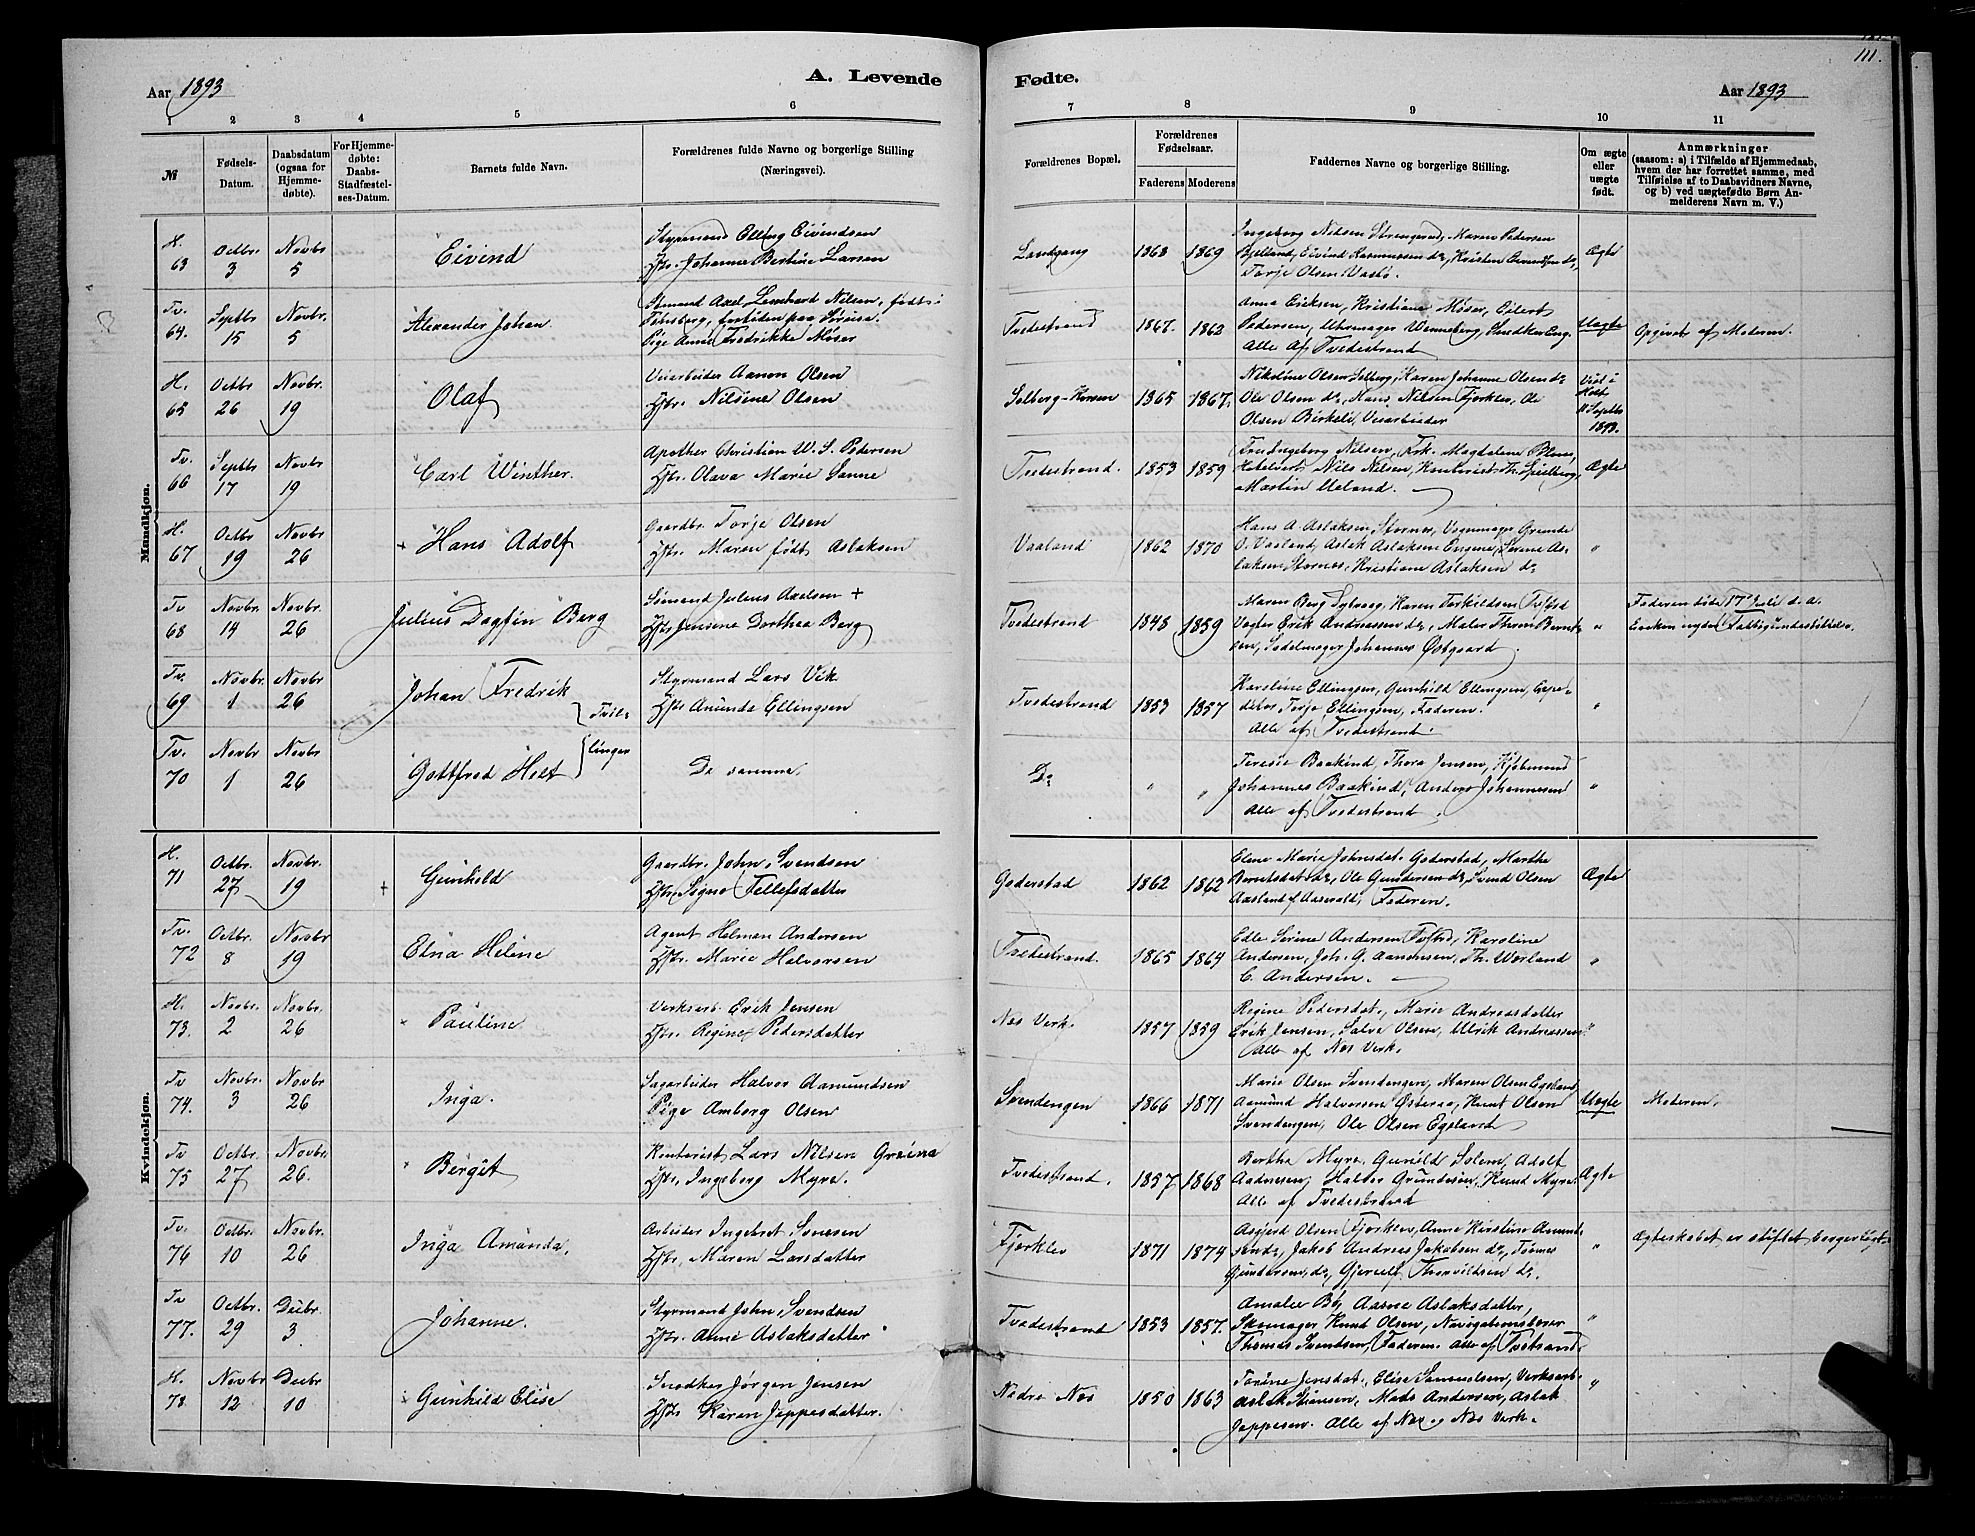 111.
Aar 1893
A. Levende
Fødte.
Aar 1893
1 2 3 4 5 6 7 8 9 10 11
№
Fødsels-Datum.
Daabsdatum (ogsaa for Hjemmedøbte).
For Hjemmedøbte: Daabs-Stadfæstelses-Datum.
Barnets fulde Navn.
Forældrenes fulde Navne og borgerlige Stilling (Næringsvei).
Forældrenes Bopæl.
Forældrenes Fødselsaar.
Faderens Moderens
Faddernes Navne og borgerlige Stilling.
Om ægte eller uægte født.
Anmærkninger (saasom: a) i Tilfælde af Hjemmedaab, hvem der har forrettet samme, med Tilføielse af to Daabsvidners Navne, og b) ved uægtefødte Børn Anmelderens Navn m. V.)
Mandkjøn.
H. 63 Octbr. 3 Novbr. 5 Eivind
Styrmand Elling Eivendsen
Hstr. Johanne Bertine Larsen
1868 1869
Ingeborg Nilsen Strengered, Maren Pedersen
Gjelland, Eivind Rasmussen do,
Torje Olsen Vasbø.
Ægte
Tv. 64. Septbr 15 Novbr. 5 Alexander Johan
Sømand Axel Nilsen, født i
Tønsberg,
Pige Anne Fredrikke Møser
Tvedestrand 1867. 1862
Anna Eriksen, Kristiane Møser, Eilert
Pedersen, Uhrmager Wenneberg, Snedker
Alle af Tvedestrand
Uægte
Opgivet af Moderen.
H. 65 Octbr 26 Novbr. 19 Olaf
Veiarbeider Aanon Olsen
Hstr. Nilsine Olsen
1865 1867.
Nikoline Olsen Solberg, Karen Johanne Olsen do
Ole Olsen do, Hans Nilsen Fjorklev, Ole
Olsen Birkeli, Veiarbeider
Viet i Holt 11 Septbr 1893.
Tv. 66 Septbr 17 Novbr 19 Carl Winther.
Apother Christian W. S. Pedersen
Hstr. Olava Marie Sanne
Tvedestrand. 1853 1859
Fru Ingeborg Nilsen, Frk. Magdalene
Nils Nilsen, Kontorist Th. Spilberg,
Martin Ueland.
Ægte
H. 67 Octbr 19 Novbr 26 + Hans Adolf
Gaardbr. Torje Olsen
Hstr. Maren født Aslaksen
Vaaland 1862 1870
Hans A. Aslaksen, Stornes, Vognmager Grunde
O. Vaaland, Aslak Aslaksen Engene, Serine As-
laksen Stornes, Kristiane Aslaksen do
"
Tv 68 Novbr. 14 Novbr. 26 Julius Dagfin Berg
Sømand Julius Axelsen +
Hstr Jensine Dorthea Berg
Tvedestrand 1848 1859
Maren Berg, Karen Torkildsen
Vægter Erik Andreassen do, Maler Thom Bernt-
sen, Sadelmager Johannes Østgaard.
"
Faderen døde 17 Juli d. a.
Enken nyder Fattigunderstøttelse.
Tv. 69 Novbr. 1 Novbr 26 Johan Fredrik
Styrmand Lars Vik
Hstr Amunda Ellingsen
Tvil-
Tvedestrand 1853 1857
Karoline Ellingsen, Gunhild Ellingsen, Expe-
ditør Torje Ellingsen, Faderen.
Alle af Tvedestrand.
"
Tv. 70 Novbr 1 Novbr 26 Gottfred Holt
linger
De samme.
Do " "
Teresie Baakind, Thora Jensen, Kjøbmand
Johannes Baakind, Anders Johannesen
Alle af Tvedestrand.
"
Kvindekjøn.
H. 71 Octbr. 27 Novbr. 19 + Gunhild
Gaardbr. John Svendsen
Hstr. Signe Tellefsdatter
Goderstad 1862 1862
Elene Marie Johnsdat. Goderstad, Marthe
Berntsdat do, Ole Gundersen do, Svend Olsen
Aasland, Faderen.
Ægte
Tv. 72 Octbr. 8 Novbr 19 Elna Helene
Agent Helman Andersen
Hstr. Marie Halvorsen
Tvedestrand. 1865 1864
Edle Serine Andersen, Karoline
Andersen, Joh. G. Aanonsen, Th. Worland
C. Andersen.
"
H. 73. Novbr. 2 Novbr. 26 Pauline
Verksarb. Erik Jensen
Hstr. Regine Pedersdatter
Nes Verk. 1857 1859
Regine Pedersdat., Marie Andreasdatter
Erik Jensen, Salve Olsen, Ulrik Andreassen
Alle af Nes Verk.
"
Tv 74. Novbr. 3 Novbr 26 Inga.
Sagarbeider Halvor Aamundsen
Pige Amborg Olsen
Svendengen 1866 1871
Marie Olsen Svendengen, Maren Olsen Egeland
Aamund Halvorsen Østeraa, Knut Olsen
Svendengen, Ole Olsen Egeland
Uægte
Moderen.
Tv 75 Octbr. 27 Novbr. 26. Bergit
Kontorist Lars Nilsen Greina
Hstr. Ingeborg Myre.
Tvedestrand. 1857 1868
Berthe Myre, Gunild Solem, Adolf
Aadnesen, Halvor Grundesen, Knud Myre.
Alle af Tvedestrand
Ægte
Tv. 76 Octbr. 10 Novbr. 26 Inga Amanda.
Arbeider Ingebret Svensen
Hstr. Maren Larsdatter
Fjorklev 1871 1874
Asgjerd Olsen Fjorklev, Anne Kirstine Amund-
sen do, Jakob Andreas Jakobsen do, Tønnes
Gundersen do, Gjerulf Thorvildsen do.
"
Ægteskabet er stiftet borgerligt.
Tv 77. Octbr. 29 Decbr. 3 Johanne.
Styrmand John Svendsen
Hstr. Anne Aslaksdatter
Tvedestrand 1853 1857.
Amalie Bø, Aasne Aslaksdatter,
Skomager Knut Olsen, Navigationslærer
Thomas Svendsen, Faderen. Alle af Tvestrand.
"
H. 78 Novbr 12 Decbr 10 Gunhild Elise
Snedker Jørgen Jensen
Hstr Karen Jeppesdatter.
Nedre Nes 1850 1863
Torine Jensdat., Elise Samuelsen, Verksarb.
Aslak Stiansen, Mads Andersen, Aslak
Jeppesen. Alle af Nes og Nes Verk.
"